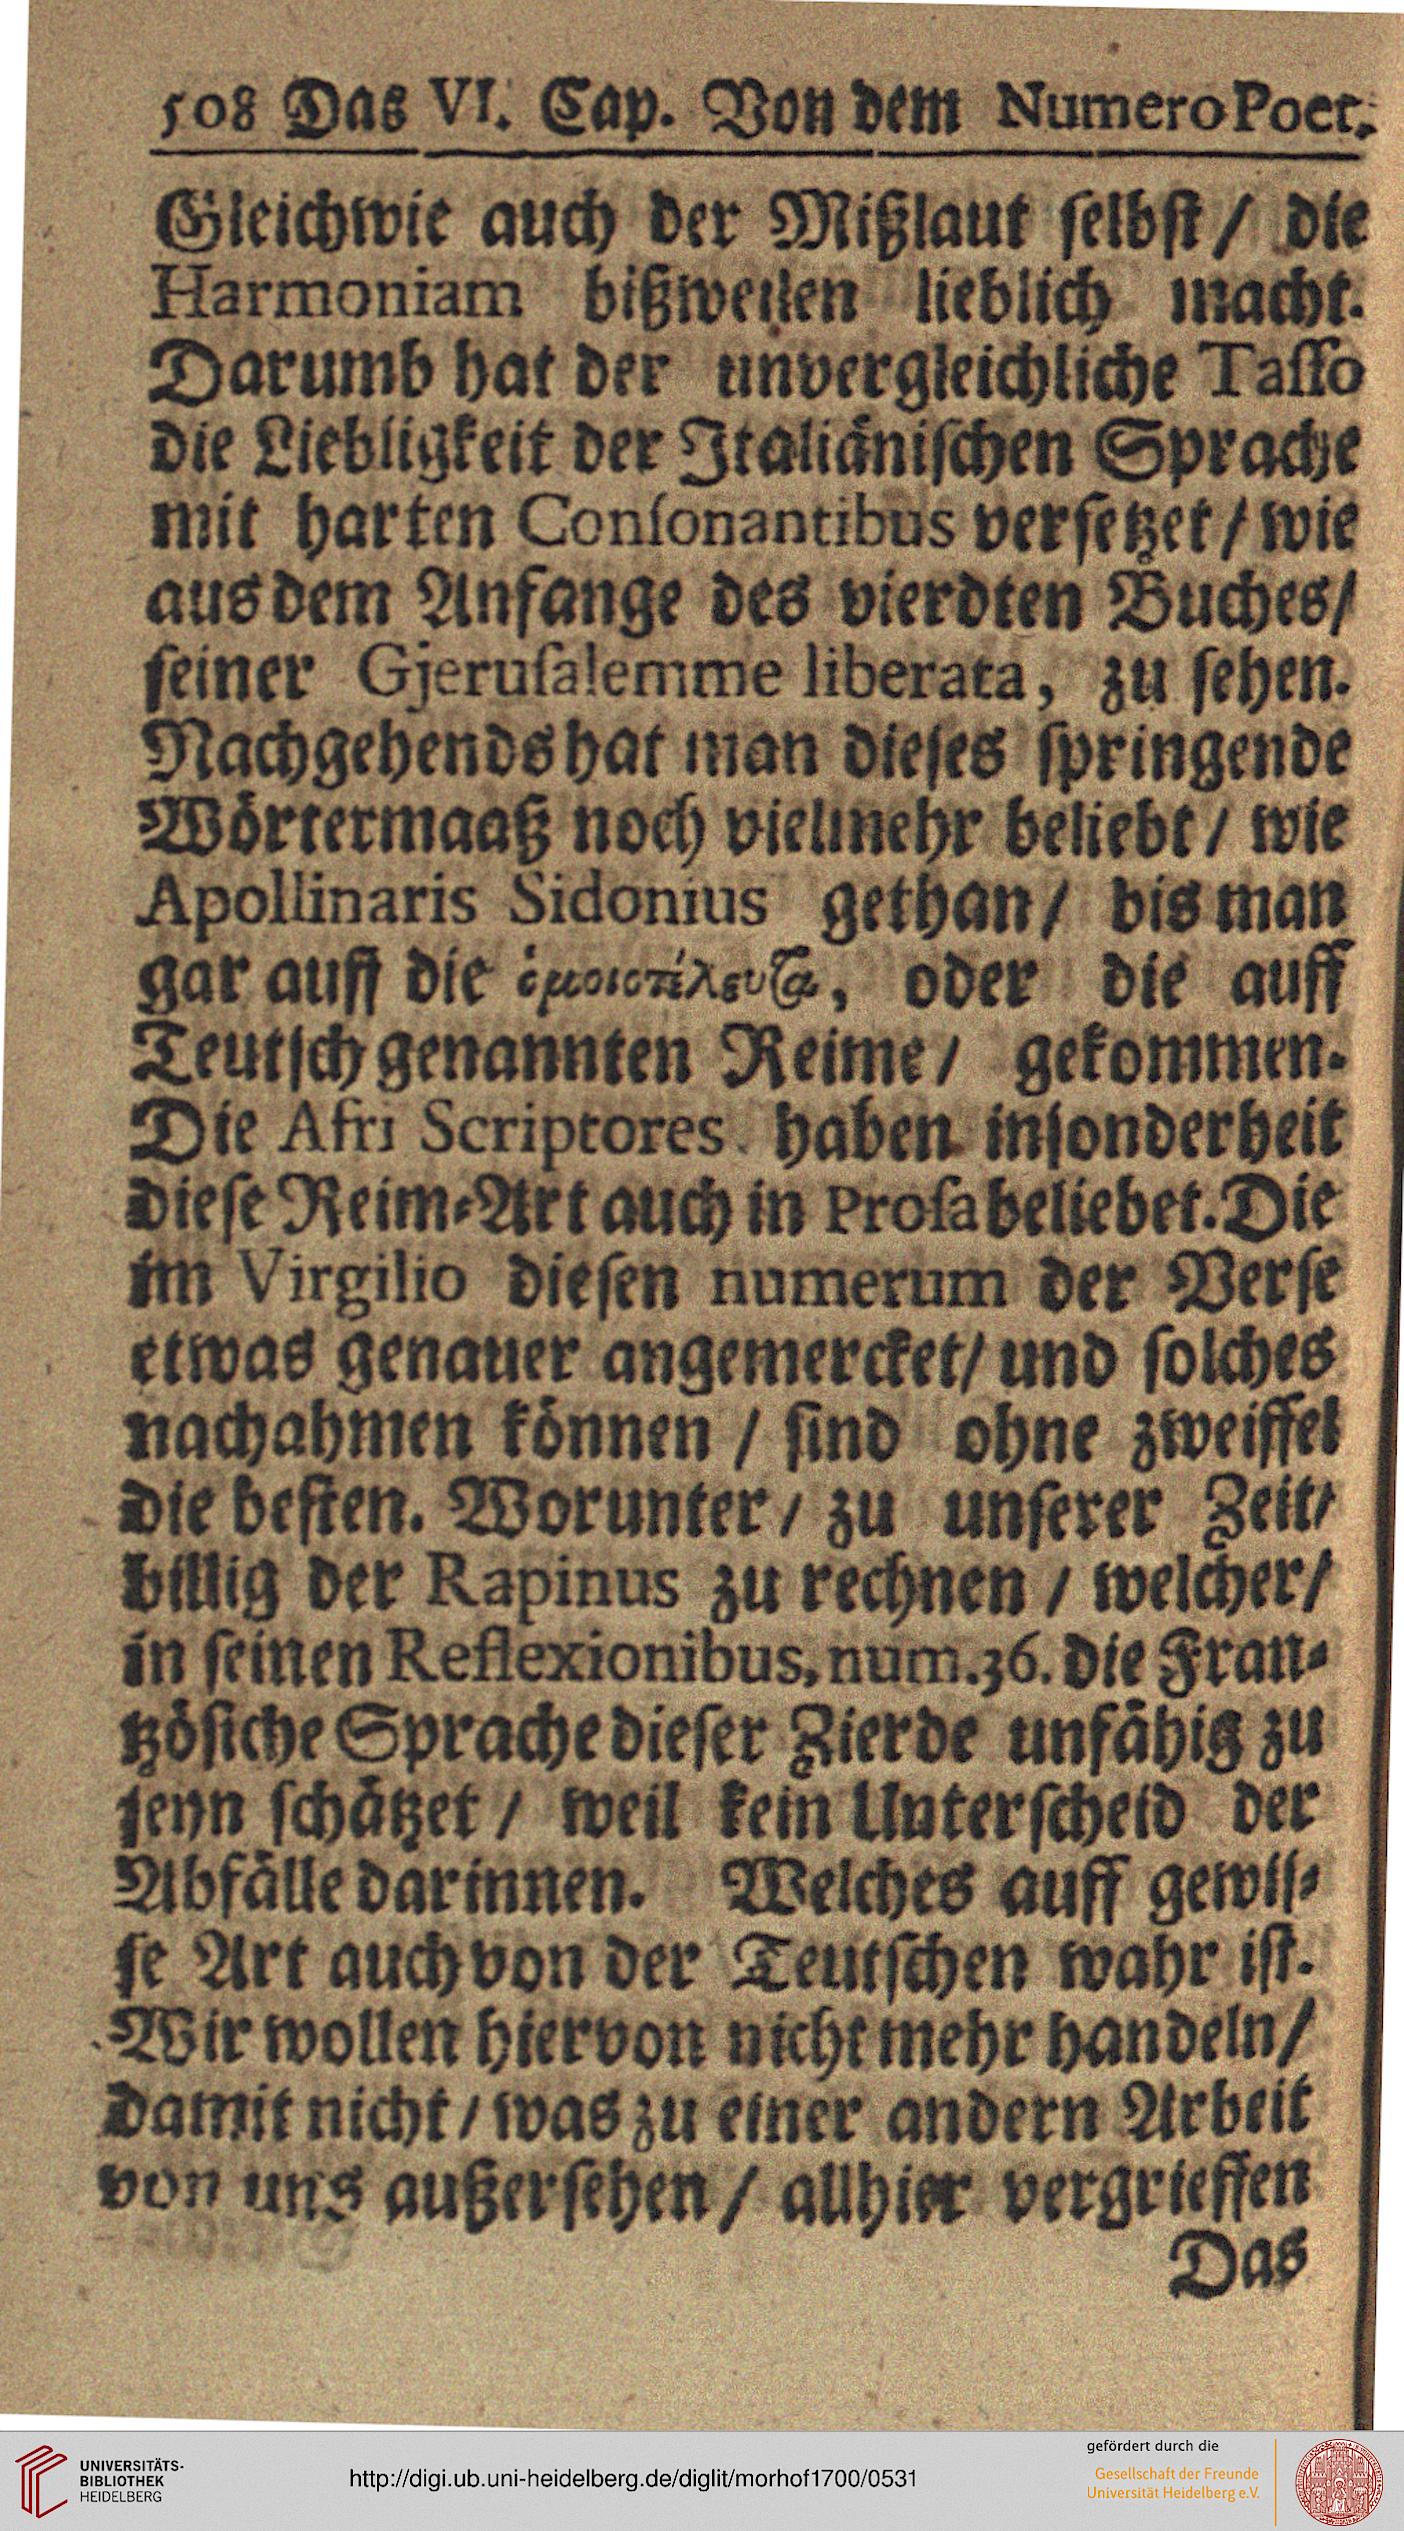 508 Das VI. Cap. Von dem Numero Poet.
Gleichwie auch der Mißlaut selbst / die
Harmoniam bißweilen lieblich macht.
Darumb hat der unvergleichliche Tasso
die Liebligkeit der Italiänischen Sprache
mit harten Consonantibus versetzet / wie
aus dem Anfange des vierdten Buches /
seiner Gjerusalemme liberata, zu sehen.
Nachgehends hat man dieses springende
Wörtermaaß noch vielmehr beliebt / wie
Apollinaris Sidonius gethan / bis man
gar auff die ὁμοιοτέλευτα, oder die auff
Teutsch genannten Reime / gekommen.
Die Afri Scriptores haben insonderheit
diese Reim-Art auch in Prosa beliebet. Die
im Virgilio diesen numerum der Verse
etwas genauer angemercket / und solches
nachahmen können / sind ohne zweiffel
die besten. Worunter / zu unserer Zeit /
billig der Rapinus zu rechnen / welcher /
in seinen Reflexionibus, num. 36. die Fran-
tzösiche Sprache dieser Zierde unfähig zu
seyn schätzet / weil kein Unterscheid der
Abfälle darinnen. Welches auff gewis-
se Art auch von der Teutschen wahr ist.
Wir wollen hiervon nicht mehr handeln /
damit nicht / was zu einer andern Arbeit
von uns außersehen / allhier vergrieffen
Das
UNIVERSITÄTS-
BIBLIOTHEK
HEIDELBERG
http://digi.ub.uni-heidelberg.de/diglit/morhof1700/0531
gefördert durch die
Gesellschaft der Freunde
Universität Heidelberg e.V.